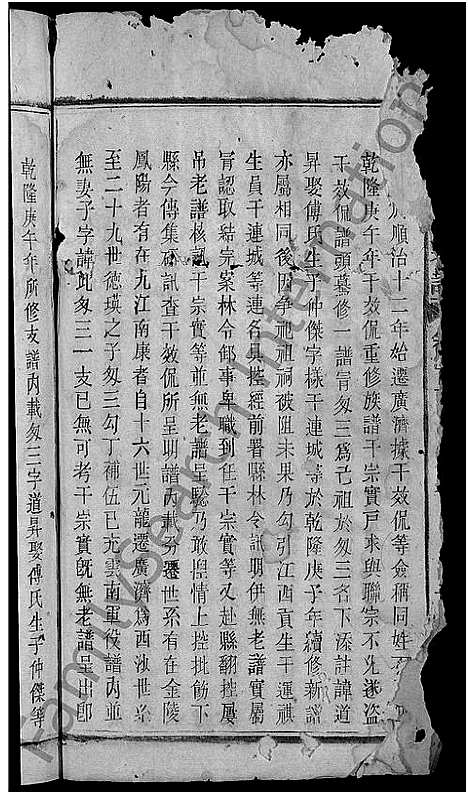 順治十二年始遷廣濟據干效侃等僉稱同姓不
乾隆庚午年干效侃重修族譜干宗實戶來與聯宗不允遂盜
干效侃譜頭募修一譜冐匆三為己祖於匆三名下添註諱道
昇娶傅氏生子仲傑字樣干連城等於乾隆庚子年續修新譜
亦屬相同後因爭祀祖祠被阻未果乃勾引江西貢生干運祺
生員干連城等連名具控經前署縣林令訊明伊無老譜實屬
冐認取結完案林令卸事卑職到任干宗實等又赴縣翻控屢
吊老譜核訊干宗實等並無老譜呈驗乃敢捏情上控批飭下
縣今傳集研訊查干效侃所呈明譜內載分遷世系有在金陵
鳳陽者有在九江南康者自十六世元龍遷廣濟為西溰世系
至二十九世德瑛之子匆三勾丁補伍已充雲南軍役譜內並
無妻子字諱此匆三一支已無可考干宗實既無老譜呈出即
乾隆庚午年所修支譜內載匆三字道昇娶傅氏生子仲傑等
FamilySearch International